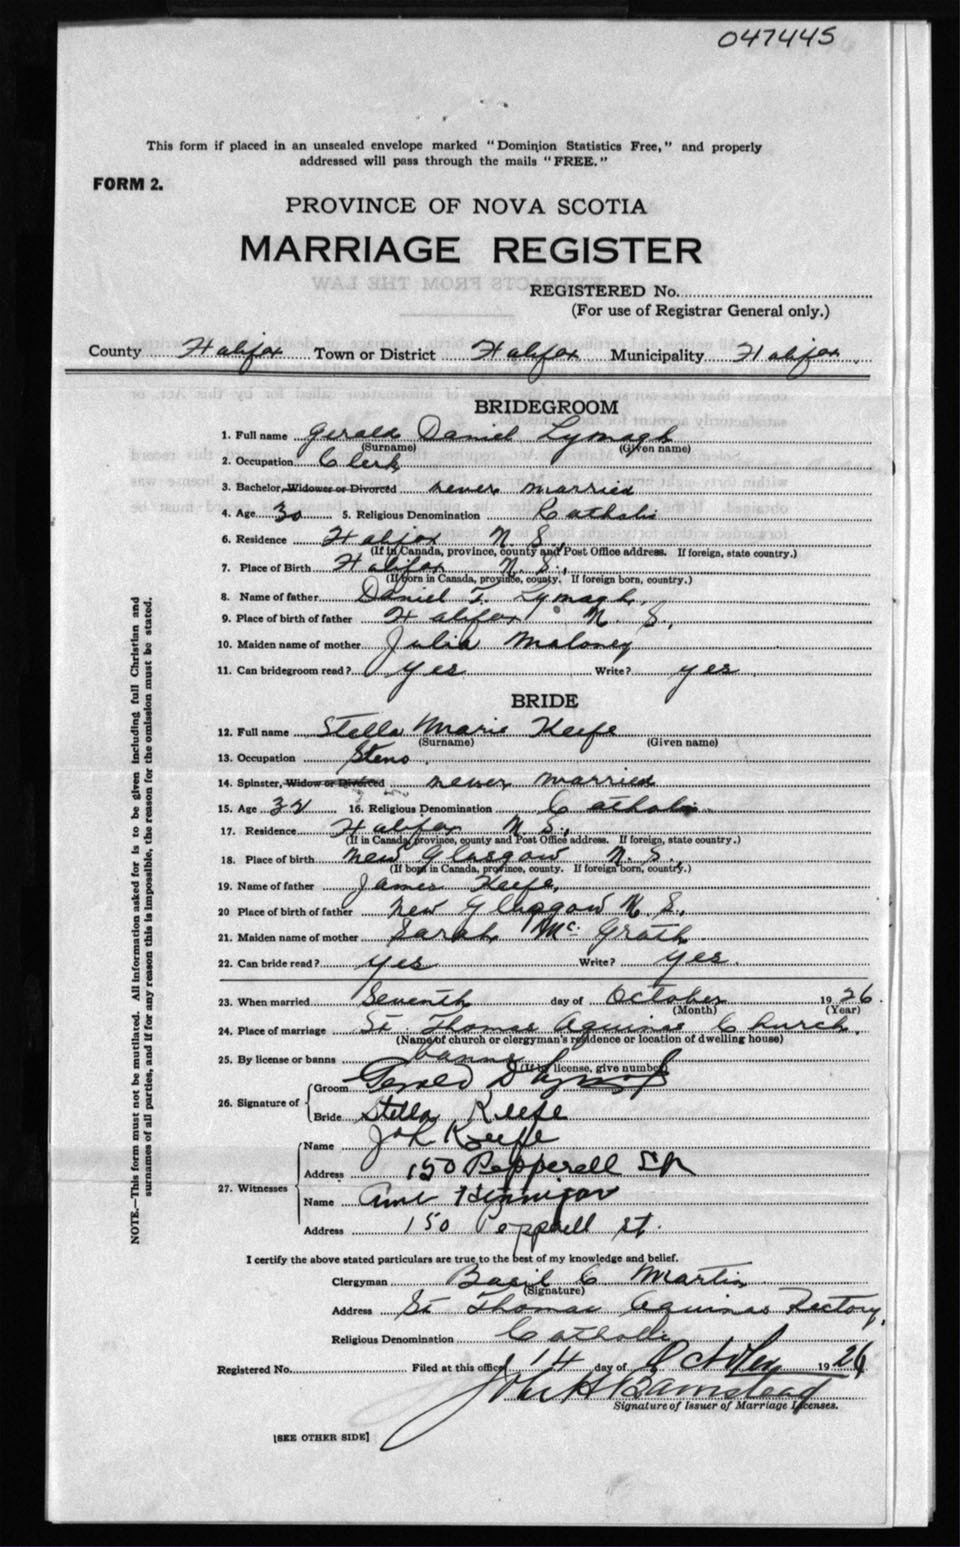 047445
This form if placed in an unsealed envelope marked "Dominion Statistics Free," and properly
addressed will pass through the mails "FREE."
FORM 2.
PROVINCE OF NOVA SCOTIA
MARRIAGE REGISTER
EXTRACTS FROM THE LAW
REGISTERED No.
(For use of Registrar General only.)
County Halifax Town or District Halifax Municipality Halifax
BRIDEGROOM
1. Full name Gerald Daniel Lymagh
(Surname) (Given name)
2. Occupation Clerk
3. Bachelor, Widower or Divorced never married
4. Age 30 5. Religious Denomination Catholic
6. Residence Halifax N. S.,
(If in Canada, province, county and Post Office address. If foreign, state country.)
7. Place of Birth Halifax N. S.,
(If born in Canada, province, county. If foreign born, country.)
8. Name of father Daniel T. Lymagh,
9. Place of birth of father Halifax N. S.,
10. Maiden name of mother Julia Maloney
11. Can bridegroom read? yes Write? yes
BRIDE
12. Full name Stella Marie Keefe
(Surname) (Given name)
13. Occupation Steno.
14. Spinster, Widow or Divorced never married
15. Age 32 16. Religious Denomination Catholic
17. Residence Halifax N. S.,
(If in Canada, province, county and Post Office address. If foreign, state country.)
18. Place of birth New Glasgow N. S.,
(If born in Canada, province, county. If foreign born, country.)
19. Name of father James Keefe,
20 Place of birth of father New Glasgow N. S.
21. Maiden name of mother Sarah McGrath
22. Can bride read? yes Write? yes.
23. When married Seventh day of October 1926.
(Month) (Year)
24. Place of marriage St Thomas Aquinas Church.
(Name of church or clergyman's residence or location of dwelling house)
25. By license or banns banns
(If by license, give number)
26. Signature of
Groom Gerald D Lymagh
Bride Stella Keefe
27. Witnesses
Name Keefe
Address 150 Pepperell St
Name Anne Hennigar
Address 150 Pepperell St.
I certify the above stated particulars are true to the best of my knowledge and belief.
Clergyman Basil C Martin
(Signature)
Address St Thomas Aquinas Rectory,
Religious Denomination Catholic
Registered No. Filed at this office 14 day of October 1926
John H Barnstead
Signature of Issuer of Marriage Licenses.
[SEE OTHER SIDE]
NOTE.—This form must not be mutilated. All information asked for is to be given including full Christian and
surnames of all parties, and if for any reason this is impossible, the reason for the omission must be stated.